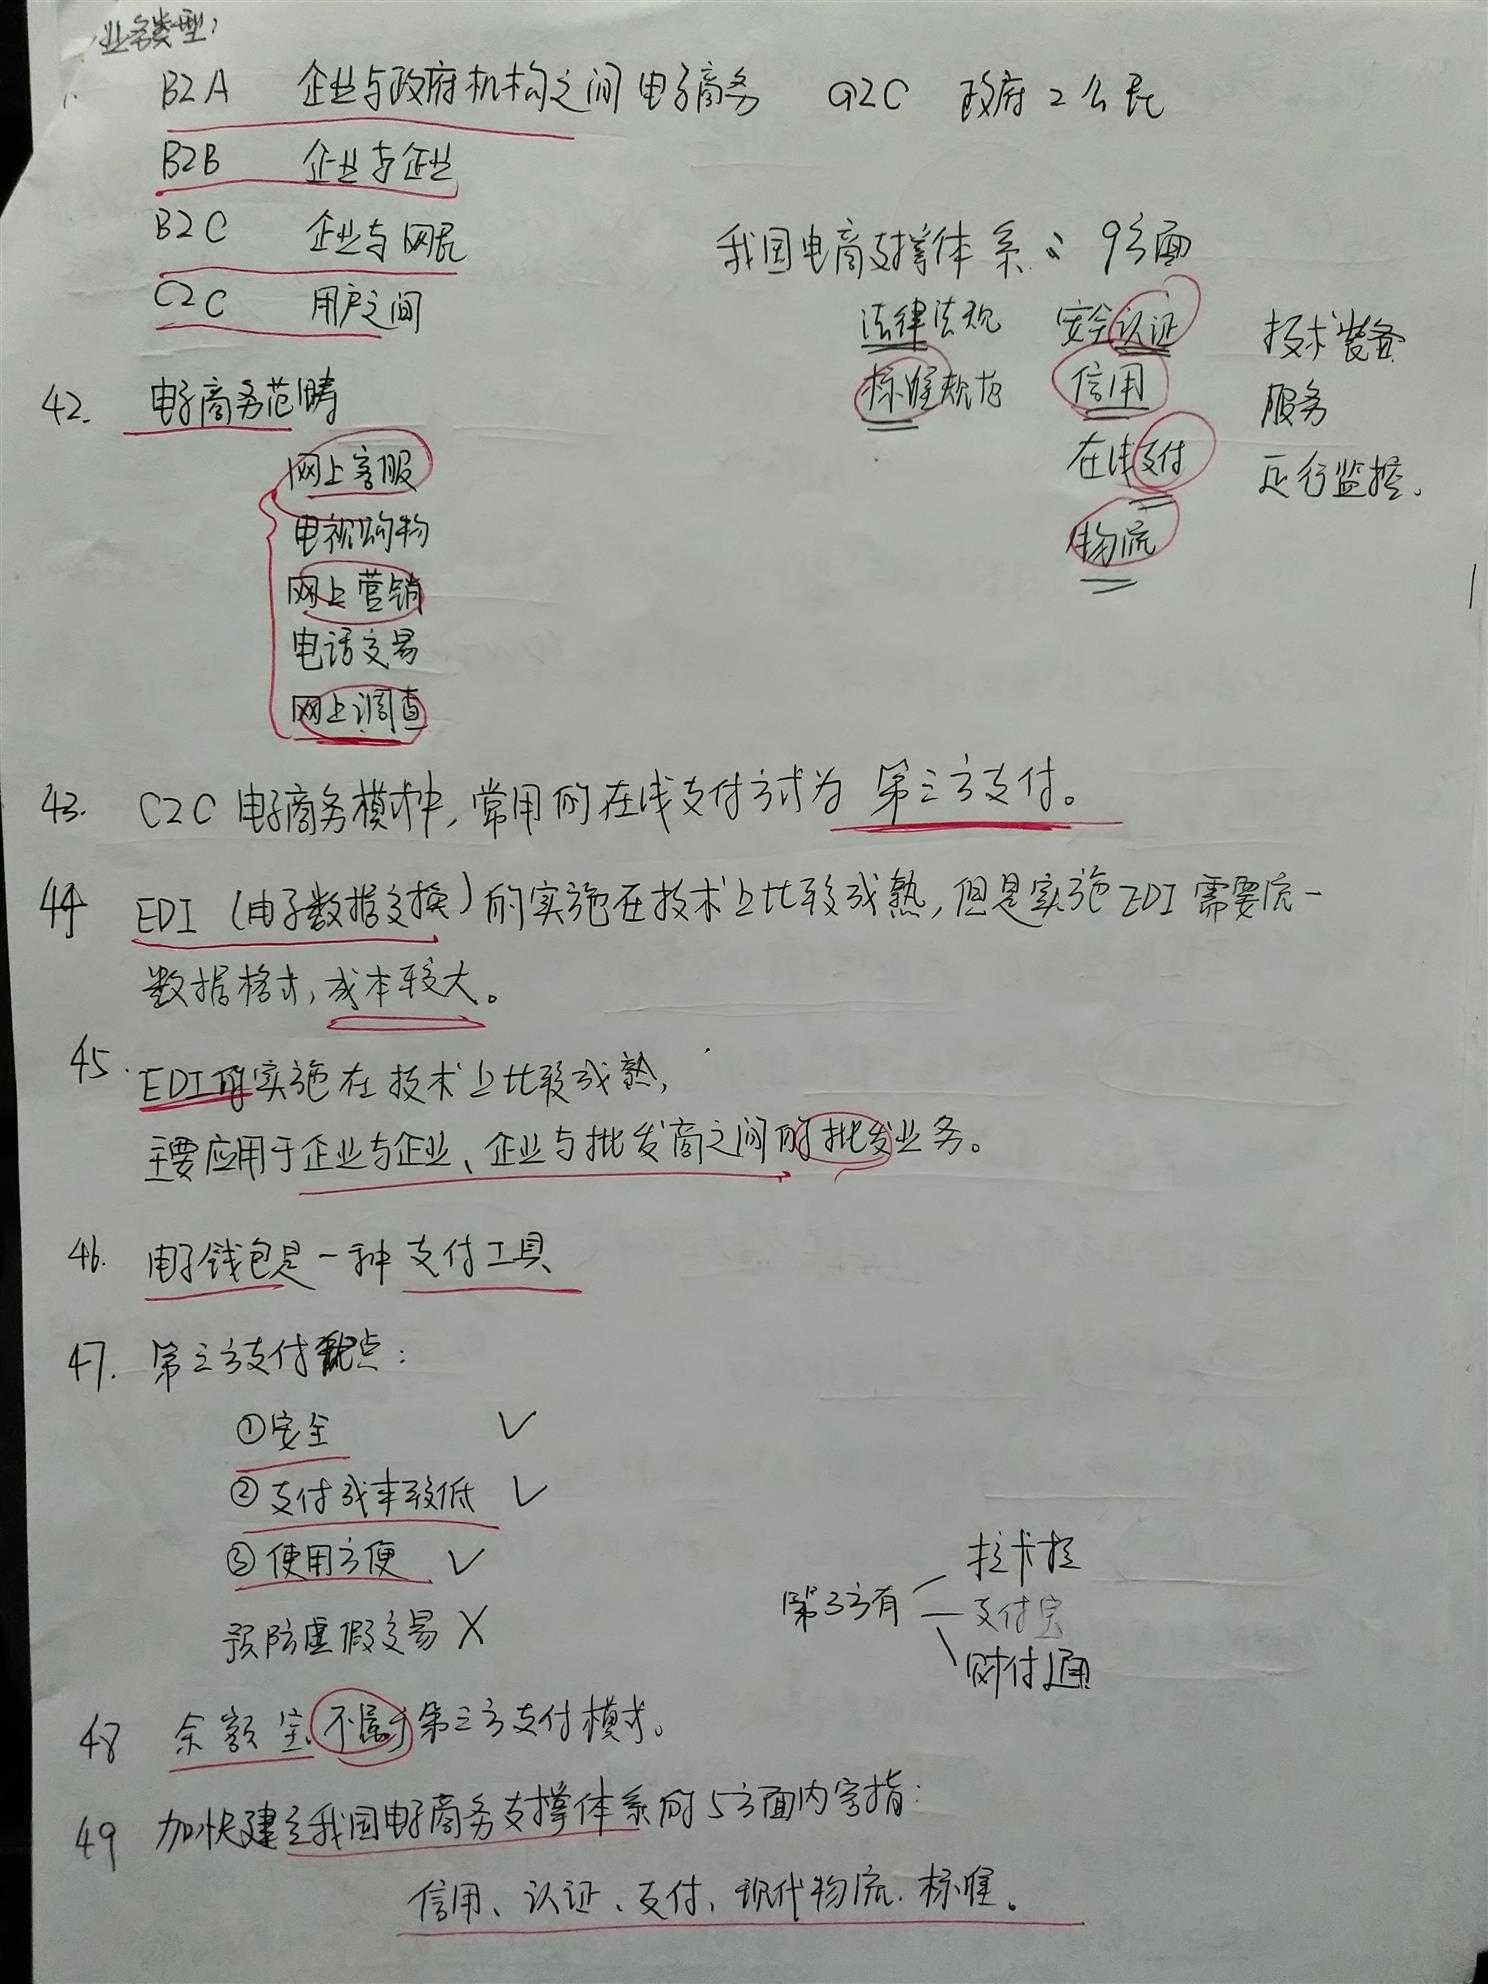 业务类型:
B2A 企业与政府机构之间电子商务 G2C 政府2公民
B2B 企业与企业
B2C 企业与网民
C2C 用户之间
我国电商支撑体系: 9方面
法律法规 安全认证 技术装备
标准规范 信用 服务
在线支付 运行监控.
物流
42. 电子商务范畴
网上客服
电视购物
网上营销
电话交易
网上调查
43. C2C 电子商务模式中, 常用的在线支付方式为 第三方支付。
44 EDI (电子数据交换) 的实施在技术上比较成熟, 但是实施EDI 需要统一
数据格式, 成本较大。
45. EDI的实施在技术上比较成熟,
主要应用于企业与企业、企业与批发商之间的批发业务。
46. 电子钱包是一种 支付工具
47. 第三方支付优点:
①安全 ✓
②支付成本较低 ✓
③使用方便 ✓
预防虚假交易 X
第3方有 拉卡拉
支付宝
财付通
48 余额宝 不属于第三方支付模式。
49 加快建立我国电子商务支撑体系的5方面内容指:
信用、认证、支付、现代物流. 标准。